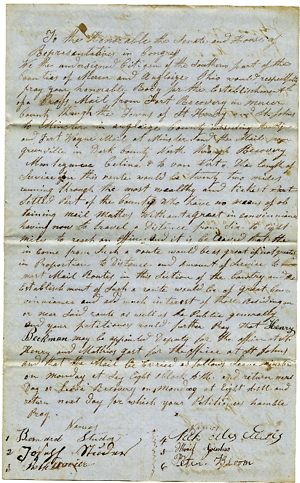 To the Honorable the Senate and House of
Representatives in Congress
We the undersigned Citizens of the Southern part of the
Counties of Mercer and Auglaize Ohio would respectfully
pray your honorable Body for the Establishment
of a Cross Mail from Fort Recovery in Mercer
County through the Towns of St Henry and St Johns
to Minster in Auglaize County
and Fort Wayne Mail at Minster and the Mail
Greenville in Dark County North through Recovery
Montezuma Celina & to Van Wert. The length of
Service on this route would be twenty two miles
running through the most wealthy and thickest
Settled Part of the County who have no means of ob
taining mail Matter Without a great inconvenience
having now to travel a distance from Six to Eight
miles to reach an office and it is believed that the
in come from Such a route would be as great if not greater
in proportion to Distance and Amount of Service as
most Mail Routes in this Section of the Country and the
Establishment of Such a route would be of great Con
vinience and much interest of those residing on
or near Said route as well as the Publick generally
and your petitioners would further Pray that Henry
Beckman may be appointed deputy for the office at St
Henry and Mathias Gast for the office at St Johns
and that the Mail be Service as follows Leave Minster
on Monday at Eight and return next
day or Leave Recovery on Monday at Eight and
return next day for which your Petitioners humble
Pray.
Names
1 Bernard
2 Joseph
3
4
5
6 Peter